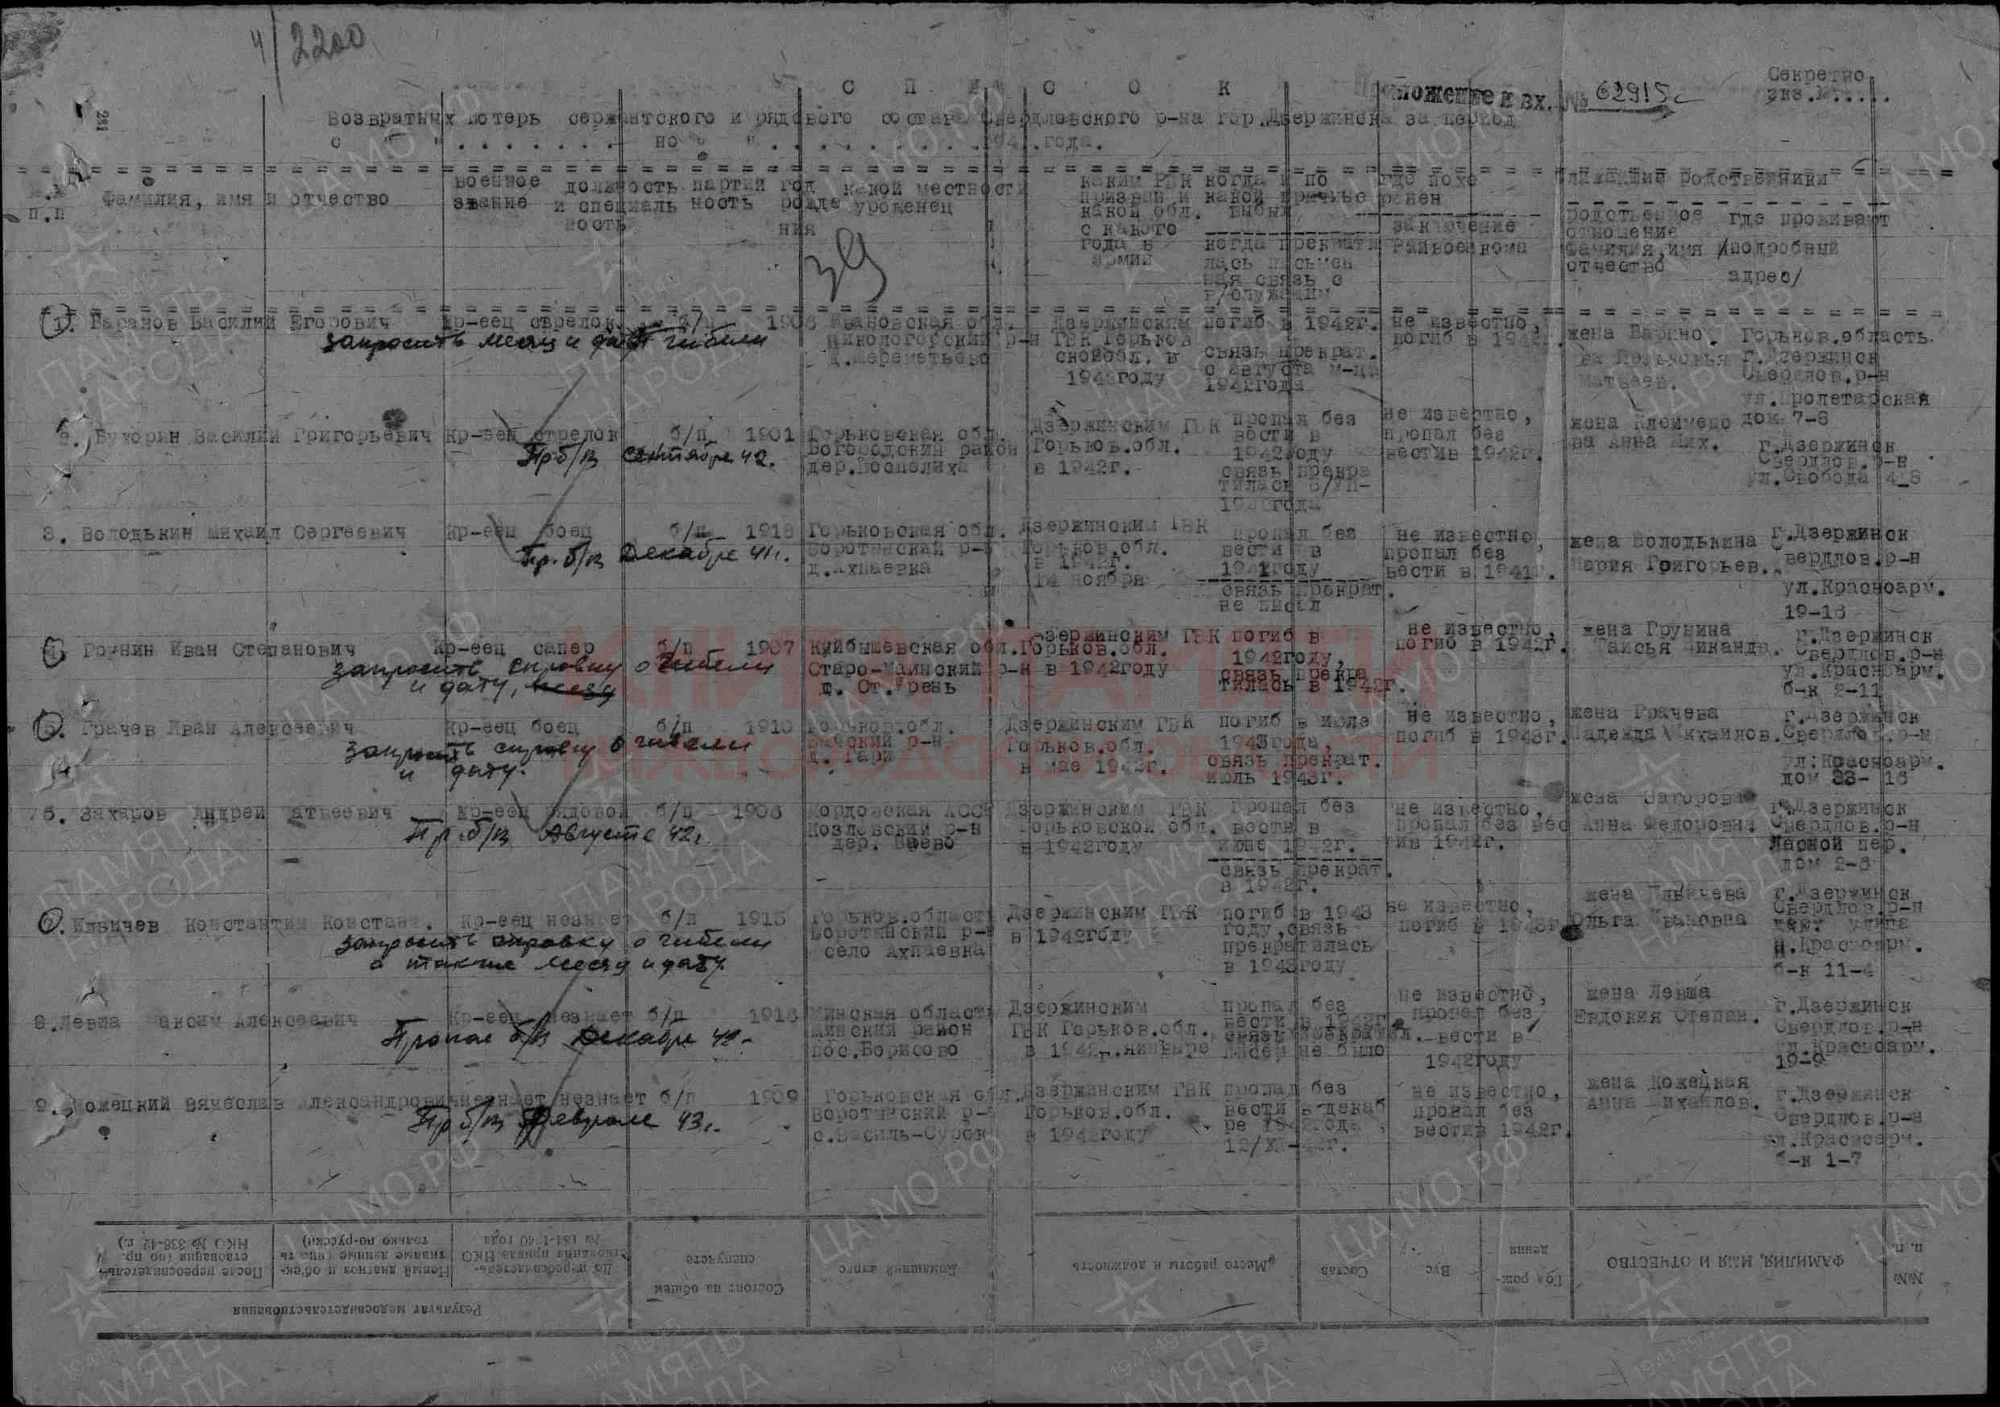 4/2200
С П И С О К
Приложение к вх. № 62915с
Секретно
экз.№.....
281
Возвратных потерь сержантского и рядового состава Свердловского р-на гор.Дзержинска за период
с " " . . . . . . . по " " . . . . . . . . .194 .года.
п.п
Фамилия, имя и отчество
военное звание
должность и специальность
партийность
год рождения
какой местности уроженец
каким РВК призван и какой обл. с какого года в армии
когда и по какой причине выбыл
когда прекратилась письменная связь с в/служащим
где похоронен
заключение Райвоенкома
ближайшие родственники
родственное отношение фамилия,имя и отчество
где проживают /подробный адрес/
39
1. Баранов Василий Егорович
Кр-еец стрелок б/п 1906
Ивановская обл.
Никологорский р-н
д.Шереметьево
Дзержинским
ГВК Горьков
ской обл. в
1942году
погиб в 1942г.
связь прекрат.
с августа м-ца
1942года
не известно,
погиб в 1942г.
жена
Матвеев.
Горьков.область
г.Дзержинск
Свердлов.р-н
ул.Пролетарская
дом 7-8
запросить месяц и дату гибели
2. Бухорин Василий Григорьевич
Кр-еец стрелок б/п 1901
Горьковская обл.
Богородский район
Дзержинским ГВК
Горьков.обл.
в 1942г.
пропал без
вести в
1942году
связь прекра
тилась 8/УП-
1942года
не известно,
пропал без
вестив 1942г.
жена Клеймено
ва Анна Мих.
г.Дзержинск
Свердлов.р-н
ул.Свобода 4-8
Пр б/в сентябре 42.
3. Володькин Михаил Сергеевич
Кр-еец боец б/п 1918
Горьковская обл.
Воротынский р-н
д.Ахпаевка
Дзержинским ГВК
Горьков.обл.
в 1942г.
14 ноября
пропал без
вести в
1941году
связь прекрат.
не писал
не известно,
пропал без
вести в 1941г.
жена Володькина
Мария Григорьев.
г.Дзержинск
Свердлов.р-н
ул.Красноарм.
19-16
Пр. б/в Декабре 41г.
4. Грунин Иван Степанович
Кр-еец сапер б/п 1907
Куйбышевская обл.
Старо-Маинский р-н
Дзержинским ГВК
Горьков.обл.
в 1942году
погиб в
1942году,
связь прекра
тилась в 1942г.
не известно,
погиб в 1942г.
жена Грунина
Таисья Никанда.
г.Дзержинск
Свердлов.р-н
ул.Красноарм.
б-к 2-11
запросить справку о гибели
и дату,
5. Грачев Иван Алексеевич
Кр-еец боец б/п 1910
Горьков.обл.
д. Гари
Дзержинским ГВК
Горьков.обл.
в мае 1942г.
погиб в июле
1943года,
связь прекрат.
июль 1943г.
не известно,
погиб в 1943г.
жена Грачева
Надежда Михайлов.
г.Дзержинск
Свердлов.р-н
ул:Красноарм.
дом 33- 16
запросить справку о гибели
и дату.
6. Захаров Андрей Матвеевич
Кр-еец рядовой б/п 1906
Мордовская АССР
Козловский р-н
Дзержинским ГВК
Горьковской обл.
в 1942году
Пропал без
вести в
июне 1942г.
связь прекрат.
в 1942г.
не известно,
пропал без вес
тив 1942г.
жена Захорова
Анна Федоровна
г.Дзержинск
Свердлов.р-н
Лесной пер.
дом 2-8
Пр. б/в Августе 42г.
7. Ильичев Константин Констант.
Кр-еец незнает б/п 1915
Горьков.область
Воротынский р-н
село Ахпаевка
Дзержинским ГВК
в 1942году
погиб в 1943
году,связь
прекратилась
в 1943году
не известно,
погиб в 1943г.
жена Ильичева
Ольга Ивановна
г.Дзержинск
Свердлов.р-н
улица
Н.Красноарм.
б-к 11-4
запросить справку о гибели
а также месяц и дату.
8.Левша Максим Алексеевич
Кр-еец незнает б/п 1918
Минская область
Минский район
пос.Борисово
Дзержинским
ГВК Горьков.обл.
в 1942г.январе
пропал без
вести в 1942г.
писем не было
не известно,
пропал без
вести в
1942году
жена Левша
Евдокия Степан.
г.Дзержинск
Свердлов.р-н
ул.Красноарм.
19-9
Пропал б/в Декабре 42.
9. Ножецкий Вячеслав Александрович
незнает незнает б/п 1909
Горьковская обл.
Воротынский р-н
с.Василь-Сурск
Дзержинским ГВК
Горьков.обл.
в 1942году
пропал без
вести в декаб
ре 1942года
12/ХП-42г.
не известно,
пропал без
вестив 1942г.
жена Ножецкая
Анна Михайлов.
г.Дзержинск
Свердлов.р-н
ул.Красноарм.
б-к 1-7
Пр б/в Феврале 43г.
КНИГА ПАМЯТИ
НИЖЕГОРОДСКОЙ ОБЛАСТИ
№№ п. п.
ФАМИЛИЯ, ИМЯ И ОТЧЕСТВО
Год рождения
Вус
Состав
Место работы и должность
Домашний адрес
Состоит на общем спецучете
Результат медосвидетельствования
До переосвидетельствования приказ НКО № 184-1-40 года
Новый диагноз и объективные данные (писать только по-русски)
После переосвидетельствования (по пр. НКО № 336-42 г.)
ЦА МО РФ
ПАМЯТЬ
НАРОДА
1941-1945